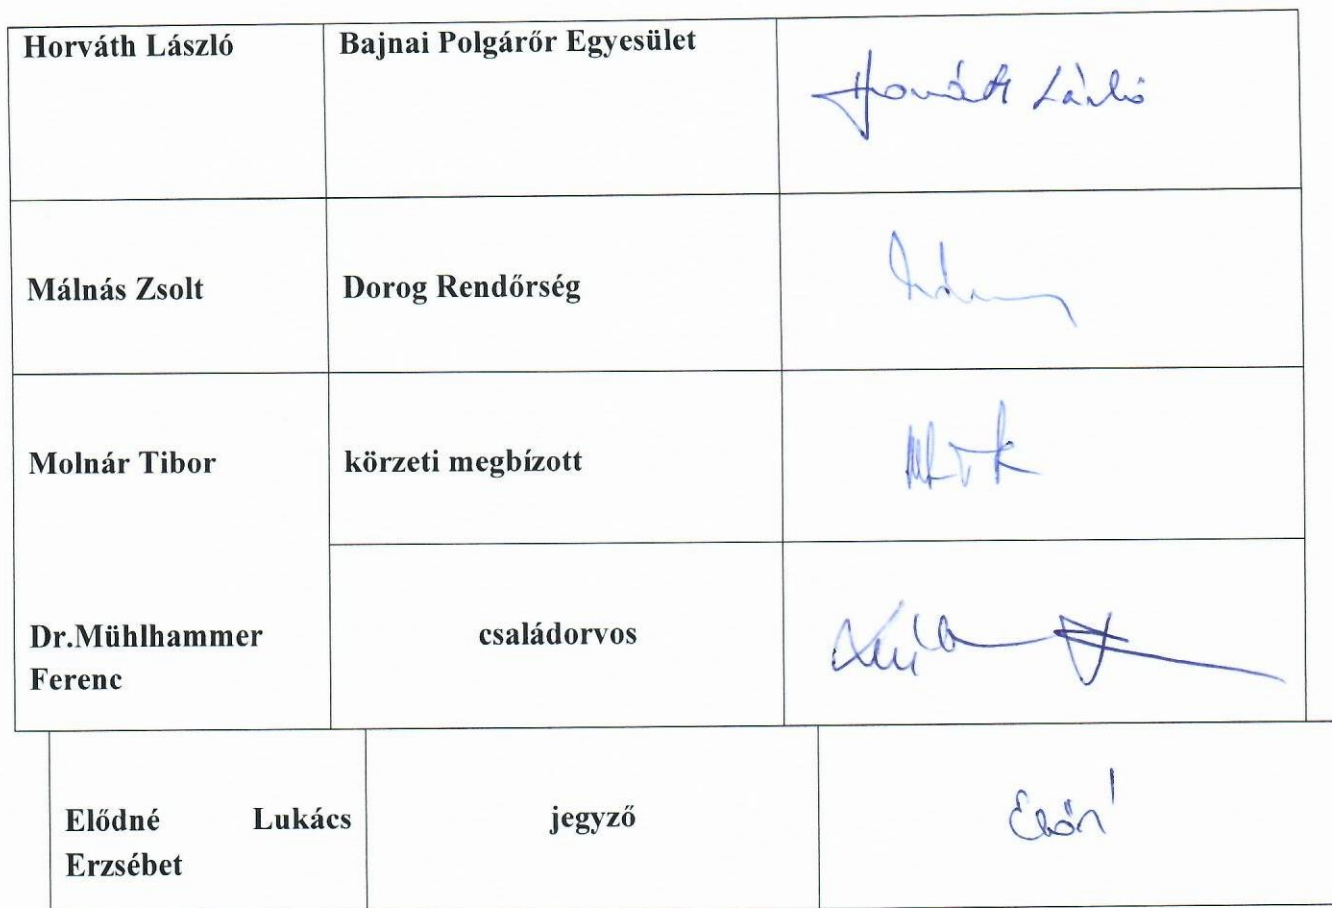 Horváth László Bajnai Polgárőr Egyesület Horváth László
Málnás Zsolt Dorog Rendőrség
Molnár Tibor körzeti megbízott
Dr.Mühlhammer családorvos
Ferenc
Elődné Lukács jegyző
Erzsébet